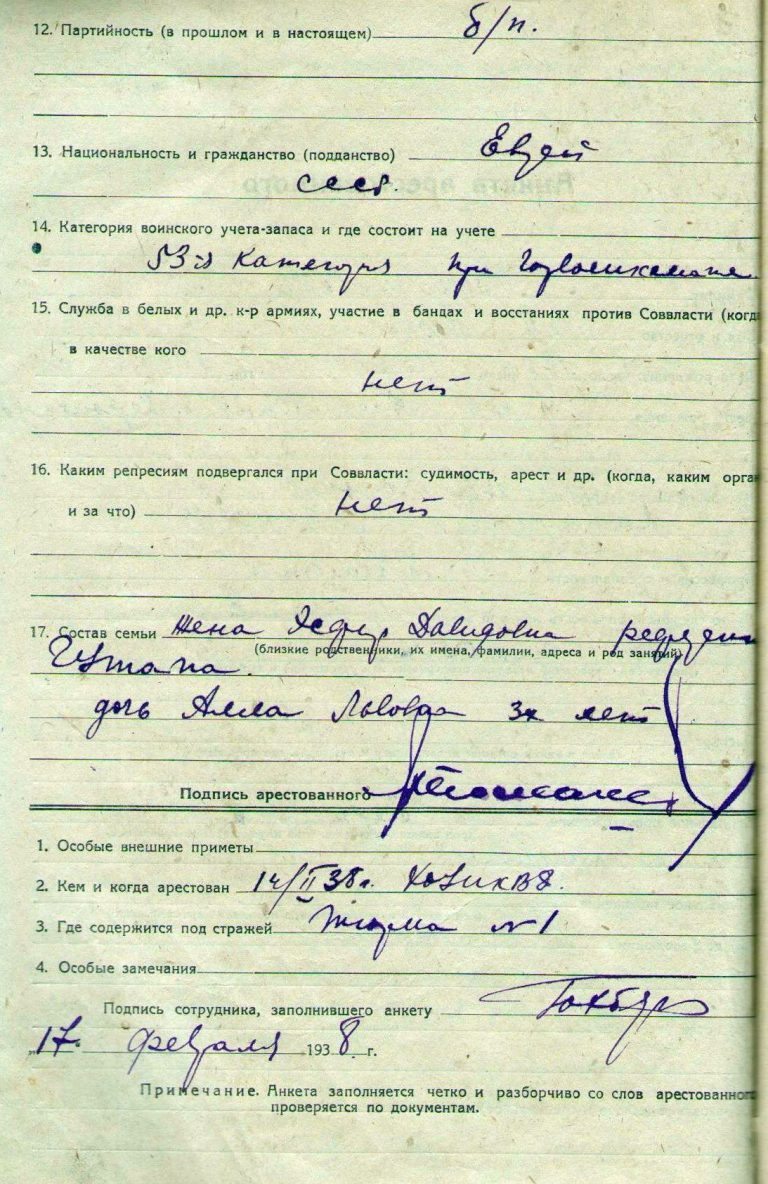 12. Партийность (в прошлом и в настоящем) б/п.
13. Национальность и гражданство (подданство) Еврей
СССР.
14. Категория воинского учета-запаса и где состоит на учете
53-я категория при Горвоенкомате
15. Служба в белых и др. к-р армиях, участие в бандах и восстаниях против Соввласти (когд
в качестве кого
нет
16. Каким репресиям подвергался при Соввласти: судимость, арест и др. (когда, каким орга
и за что) нет
17. Состав семьи жена Давидовна
(близкие родственники, их имена, фамилии, адреса и род занятий)
дочь Алла Львовна 3х лет
Подпись арестованного
1. Особые внешние приметы
2. Кем и когда арестован 14/II 38г. ХОУНКВД.
3. Где содержится под стражей Тюрма №1
4. Особые замечания
Подпись сотрудника, заполнившего анкету
„17“ февраля 1938 г.
Примечание. Анкета заполняется четко и разборчиво со слов арестованного
проверяется по документам.